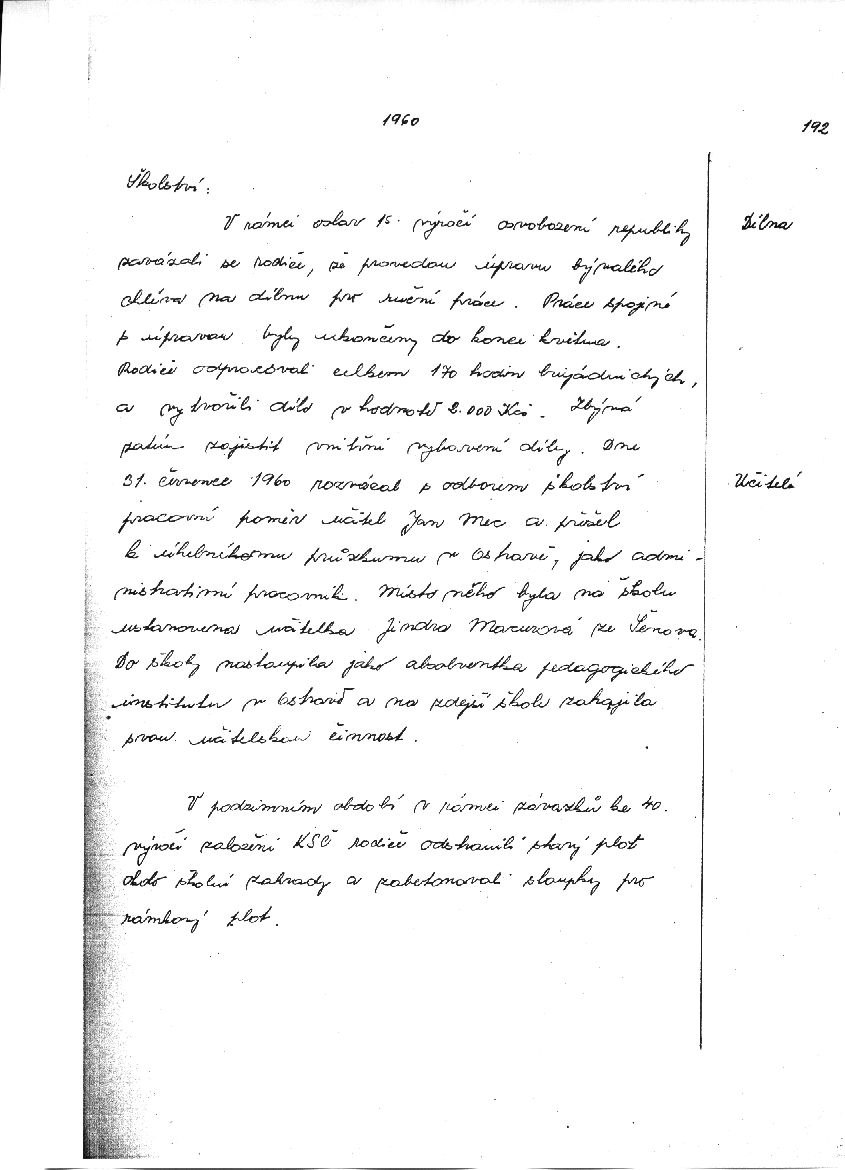 1960
192
Školství:
V rámci oslav 15. výročí osvobození republiky
Dílna
zavázali se rodiče, že provedou úpravu bývalého
chléva na dílnu pro ruční práce. Práce spojené
s úpravou byly ukončeny do konce května.
Rodiče odpracovali celkem 170 hodin brigádnických,
a vytvořili dílo v hodnotě 2.000 Kčs. Zbývá
zatím zajistit vnitřní vybavení dílny. Dne
31. července 1960 rozvázal s odborem školství
Učitelé
pracovní poměr učitel Jan Mec a přešel
k uhelnému průzkumu v Ostravě, jako admi-
nistrativní pracovník. Místo něho byla na školu
ustanovena učitelka Jindra Macurová ze Šenova.
Do školy nastoupila jako absolventka pedagogického
institutu v Ostravě a na zdejší škole zahájila
svou učitelskou činnost.
V podzimním období v rámci závazků ke 40.
výročí založení KSČ rodiče odstranili starý plot
okolo školní zahrady a zabetonovali sloupky pro
rámkový plot.